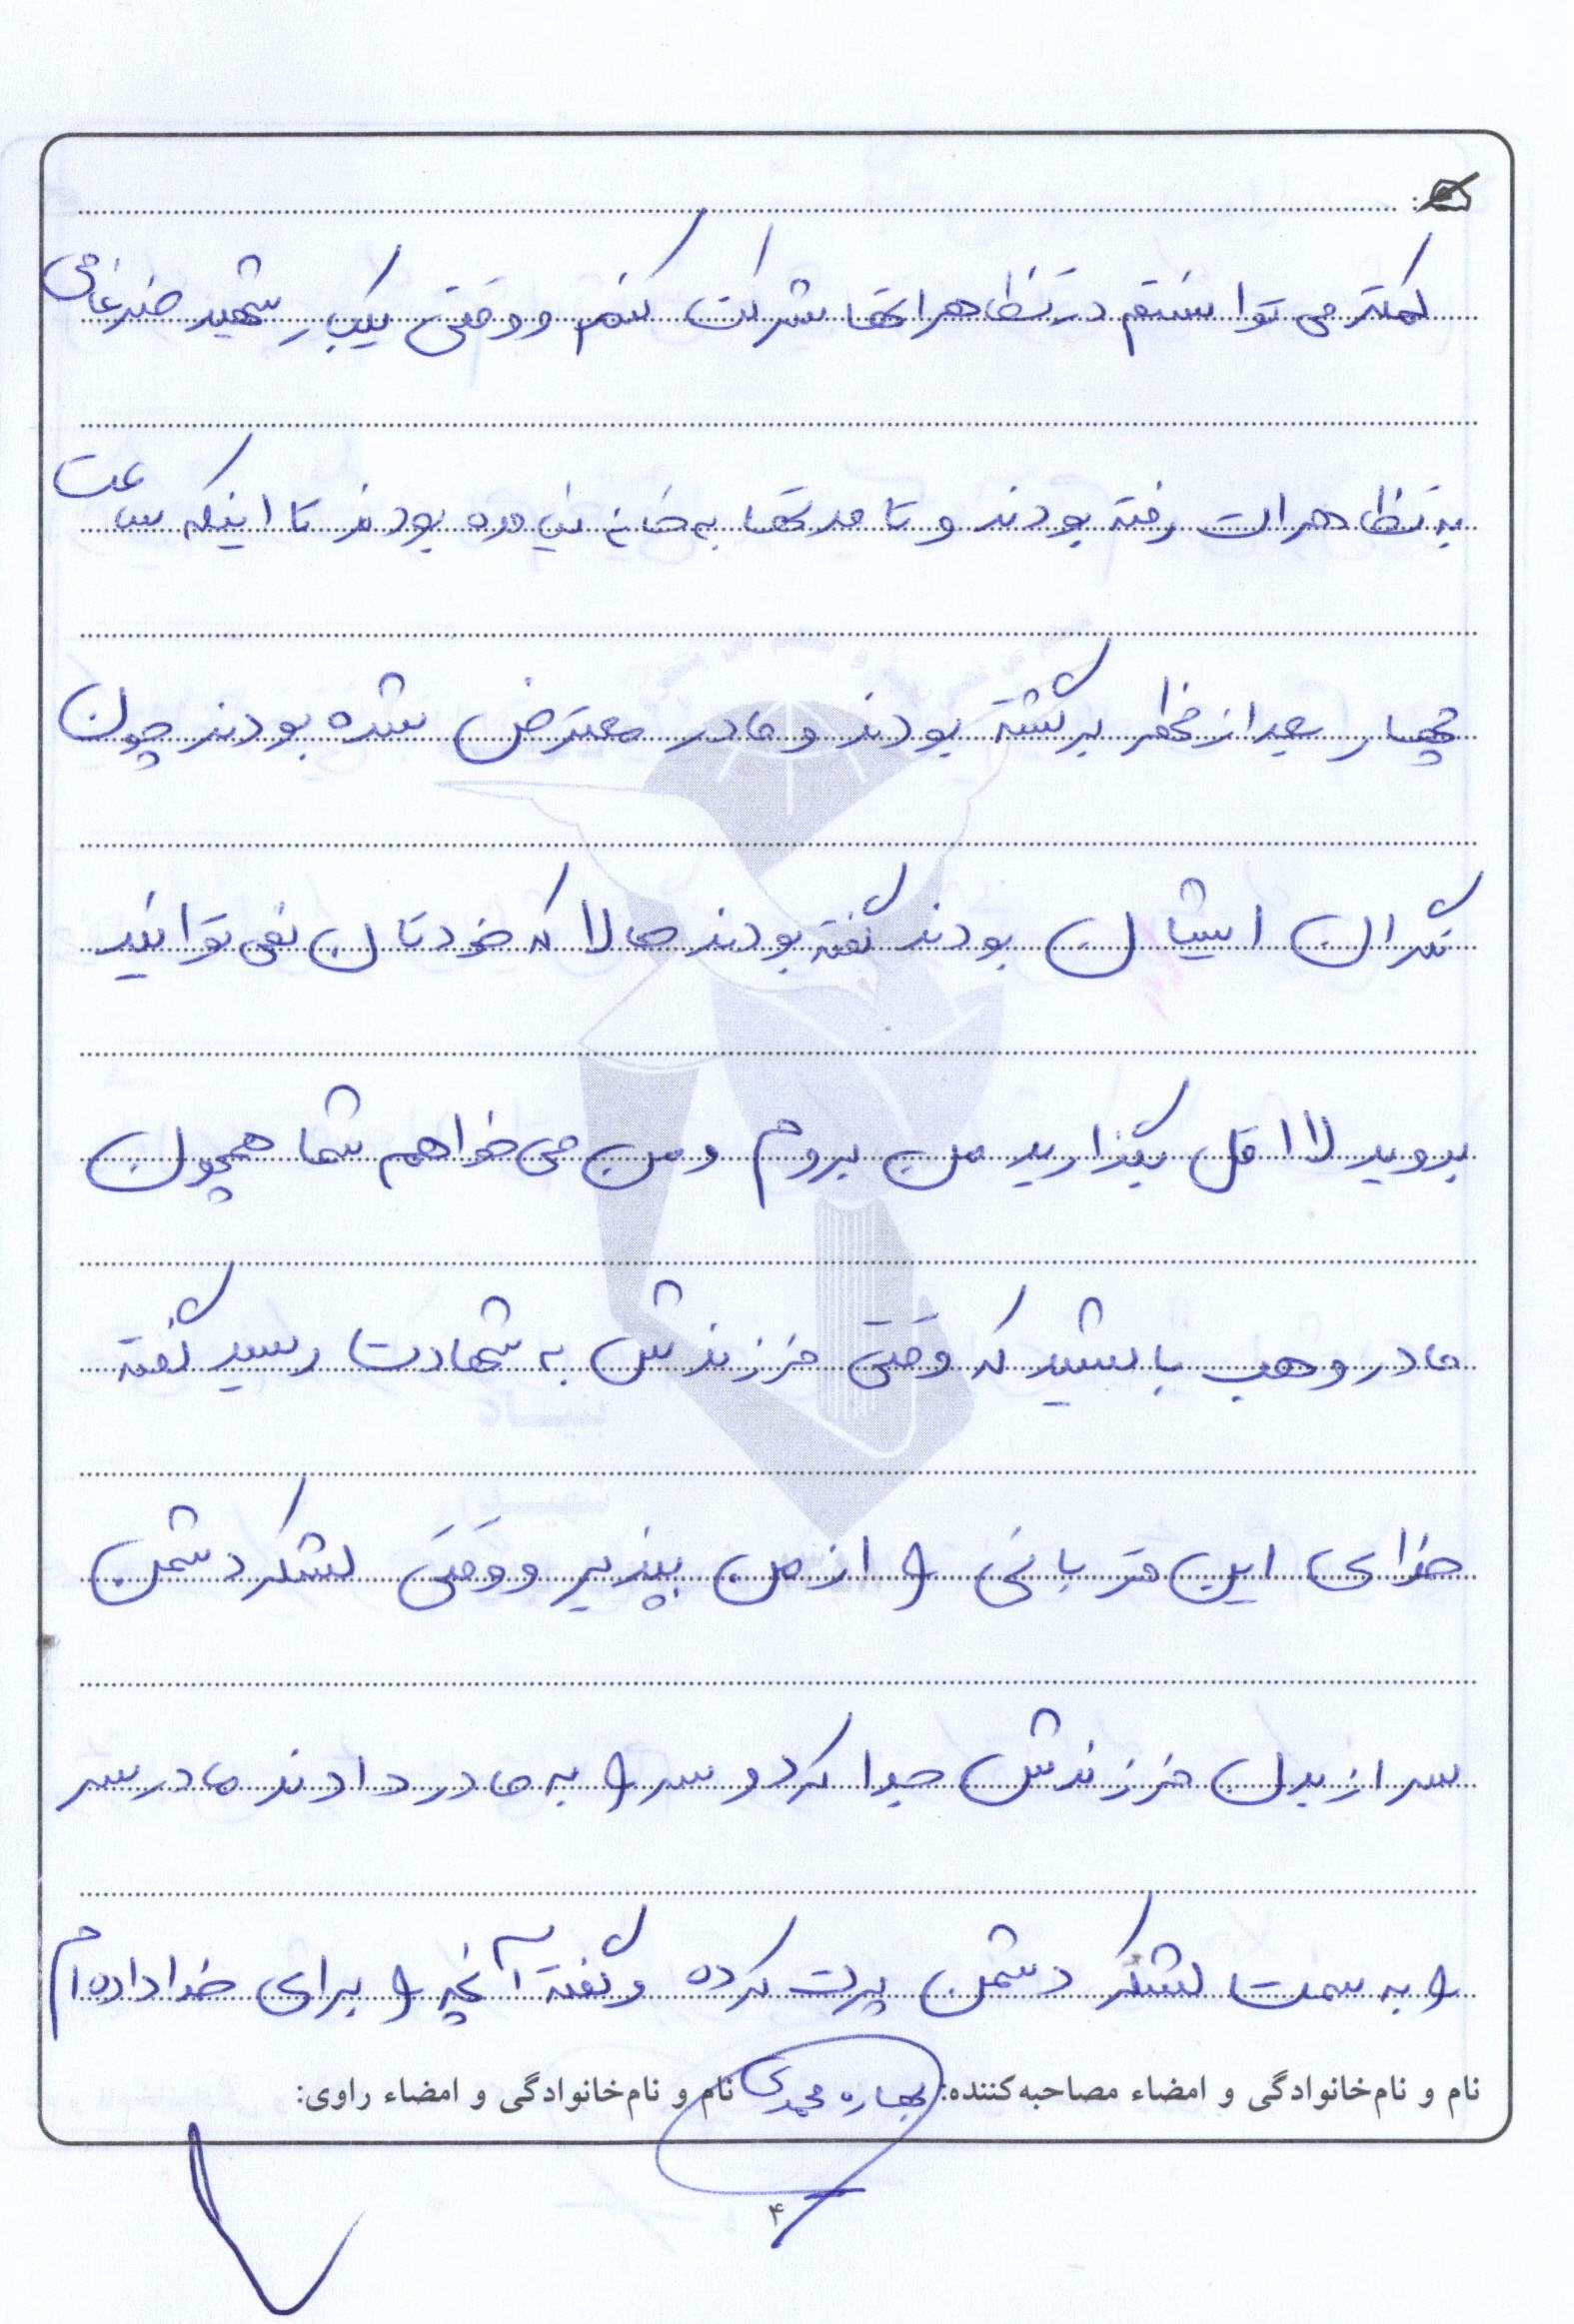 کمتر می توانستم در تظاهراتها شرکت کنم و وقتی یکبار شهید ضرغامی
به تظاهرات رفته بودند و تا مدتها به خانه نیامده بودند تا اینکه ساعت
چهار بعد از ظهر برگشته بودند و مادر معترض شده بودند چون
نگران ایشان بودند گفته بودند حالا که خودتان نمی توانید
بروید لااقل بگذارید من بروم و من می خواهم شما همچون
مادر وهب باشید که وقتی فرزندش به شهادت رسید گفته
خدای این قربانی را از من بپذیر و وقتی لشکر دشمن
سر از بدن فرزندش جدا کرد و سر را به مادر دادند مادر سر
را به سمت لشکر دشمن پرت کرده و گفته آنچه را برای خدا داده ام
نام و نام‌خانوادگی و امضاء مصاحبه‌کننده: بهاره محمدی نام و نام‌خانوادگی و امضاء راوی:
۴